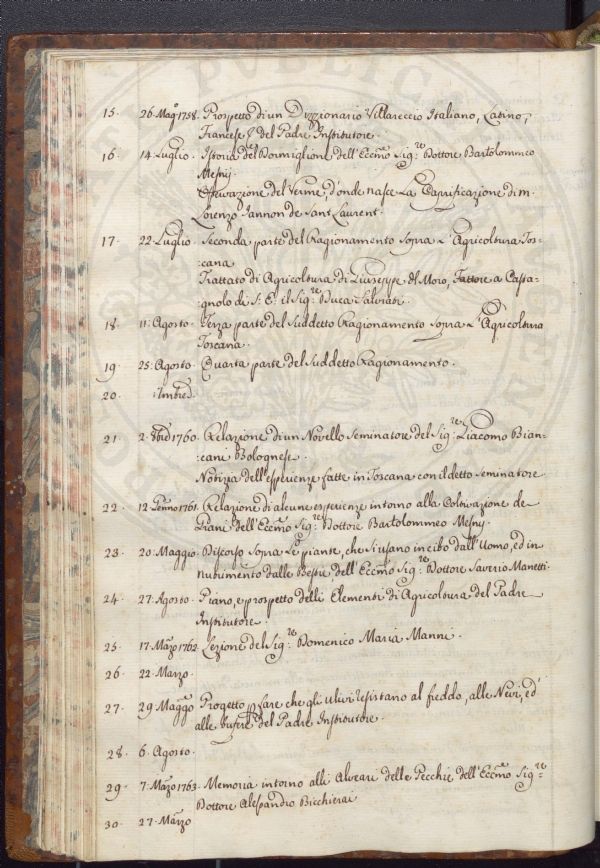 15. 26. Mag.º 1758. Prospetto di un Dizzionario Villareccio Italiano, Latino,
Francese &. del Padre Institutore.
16. 14. Luglio. Istoria del Bormiglione dell'Eccmo Sig.re Dottore Bartolommeo
Mesny.
Osservazione del Verme, d'onde nasce La Caprificazione di m.
Lorenzo Jannon de Sant Laurent.
17. 22. Luglio. Seconda parte del Ragionamento Sopra L'Agricoltura Tos-
:cana
Trattato di Agricoltura di Giuseppe del Moro, Fattore a Casta-
:gnolo di S: E: il Sig.re Duca Salviati.
18. 11: Agosto. Terza parte del Suddetto Ragionamento Sopra L'Agricoltura
Toscana.
19. 25: Agosto. Quarta parte del Suddetto Ragionamento.
20.
21. 2. 8bre 1760. Relazione di un Novello Seminatore del Sig.re Giacomo Bian-
:cani Bolognese.
Notizia dell'esperienze fatte in Toscana con il detto Seminatore
22. 12 Genn.o 1761. Relazione di alcune esperienze intorno alla Coltivazione de
Grani dell'Eccmo Sig.re Dottore Bartolommeo Mesny.
23. 20. Maggio. Discorso Sopra Le piante, che si usano in cibo dall'Uomo, ed in
nutrimento dalle Bestie, dell'Eccmo Sig.re Dottore Saverio Manetti.
24. 27. Agosto. Piano, e prospetto delli Elementi di Agricoltura del Padre
Institutore.
25. 17. Marzo 1762. Lezione del Sig.re Domenico Maria Manni.
26. 22. Marzo.
27. 29. Maggo Progetto p fare che gli ulivi resistano al freddo, alle Nevi, ed
alle bufere del Padre Institutore.
28. 6. Agosto.
29. 7. Marzo 1763. Memoria intorno alli Alveari delle Pecchie dell'Eccmo Sig.re
Dottore Alessandro Bicchierai
30. 27. Marzo